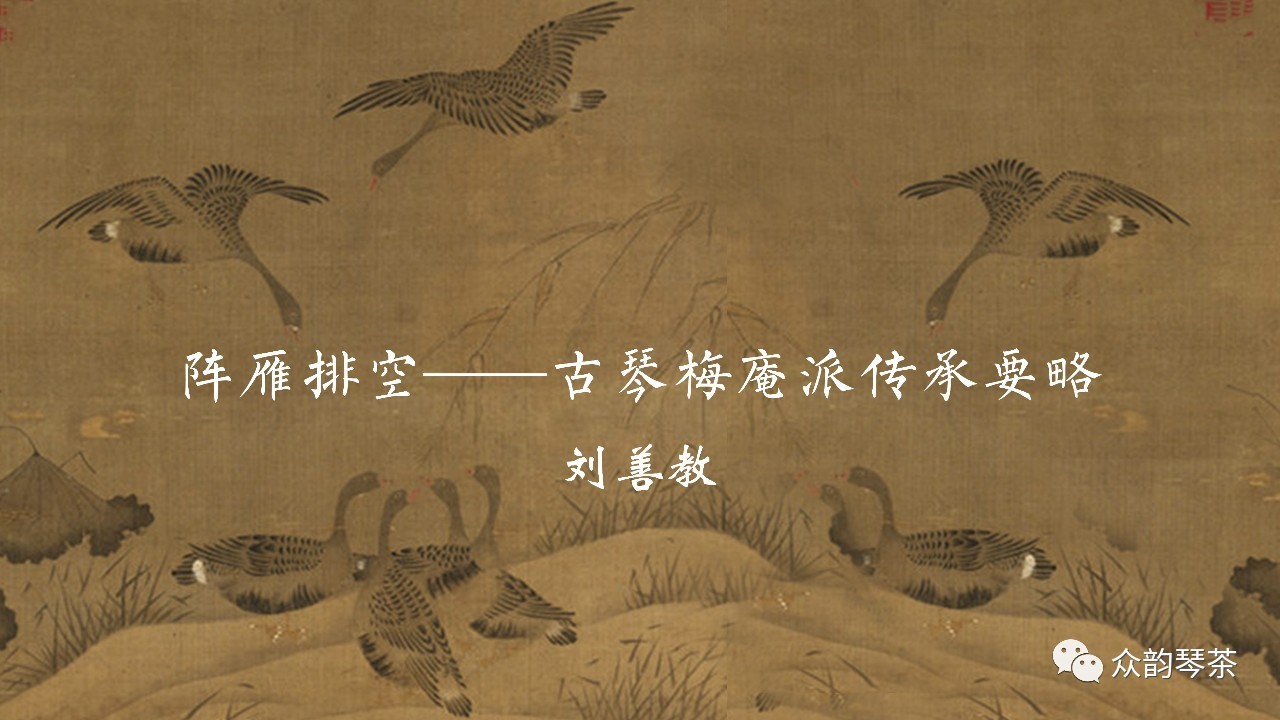 阵雁排空——古琴梅庵派传承要略
刘善教
众韵琴茶